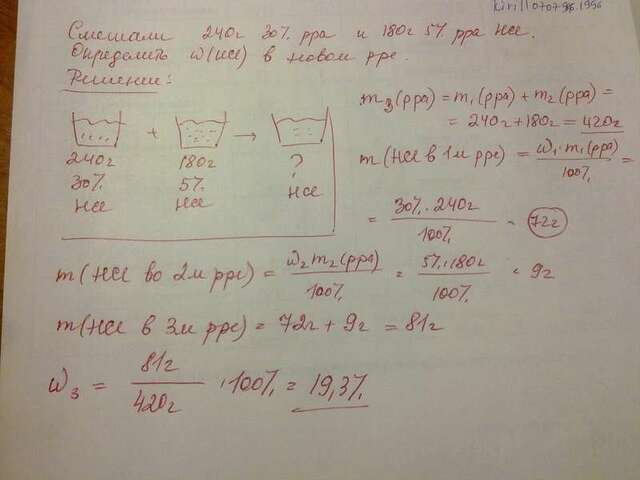 kirill070796.1996
Смешали 240г 30% рра и 180г 5% рра HCl.
Определить ω(HCl) в новом рре.
Решение:
240г + 180г → ?
30% 5% HCl
HCl HCl
m₃(рра) = m₁(рра) + m₂(рра) =
= 240г + 180г = 420г
m(HCl в 1м рре) = ω₁·m₁(рра) / 100% =
= 30%·240г / 100% = 72г
m(HCl во 2м рре) = ω₂m₂(рра) / 100% = 5%·180г / 100% = 9г
m(HCl в 3м рре) = 72г + 9г = 81г
ω₃ = 81г / 420г · 100% = 19,3%